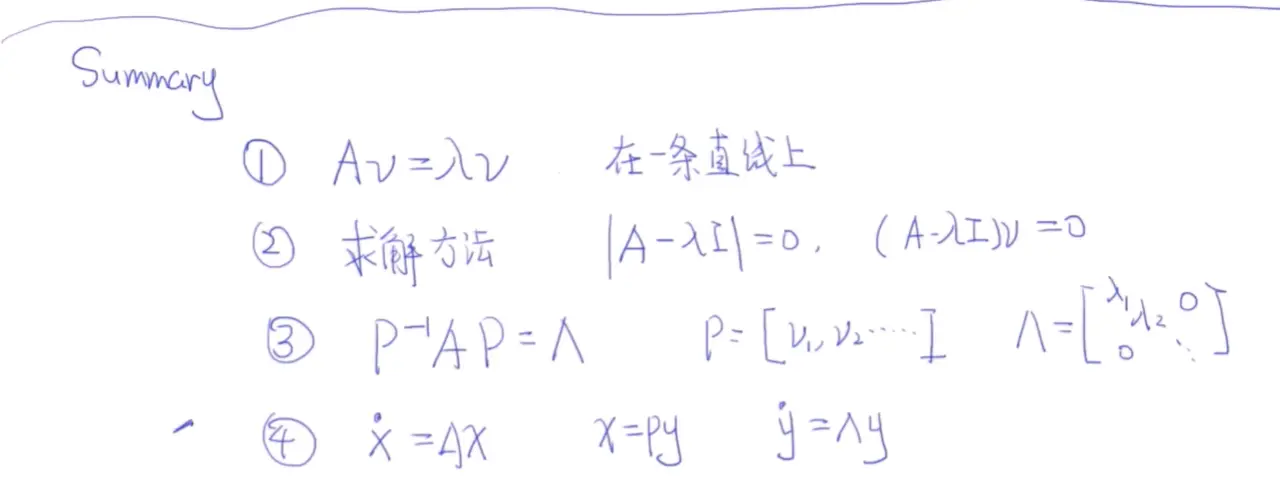 Summary
① Aν=λν 在一条直线上
② 求解方法 |A-λI|=0, (A-λI)ν=0
③ P⁻¹AP=Λ P=[ν₁,ν₂……] Λ=[λ₁ λ₂ 0 0 ⋱]
④ ẋ=Ax x=Py ẏ=Λy